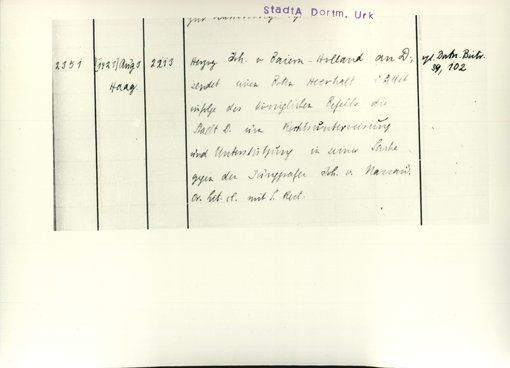 StadtA Dortm. Urk
2351 [1421] Aug 3 Haag. 2213
Herzog Joh. v. Baiern-Holland an D;
sendet einen Boten i
infolge des königlichen Befehls die
Stadt D. um Rechtsunterweisung
und Unterstützung in seiner Sache
gegen den Junggrafen Joh. v. Nassau.
Or. lit. cl. mit S. Rest.
vgl. Dortm. Beitr.
39, 102